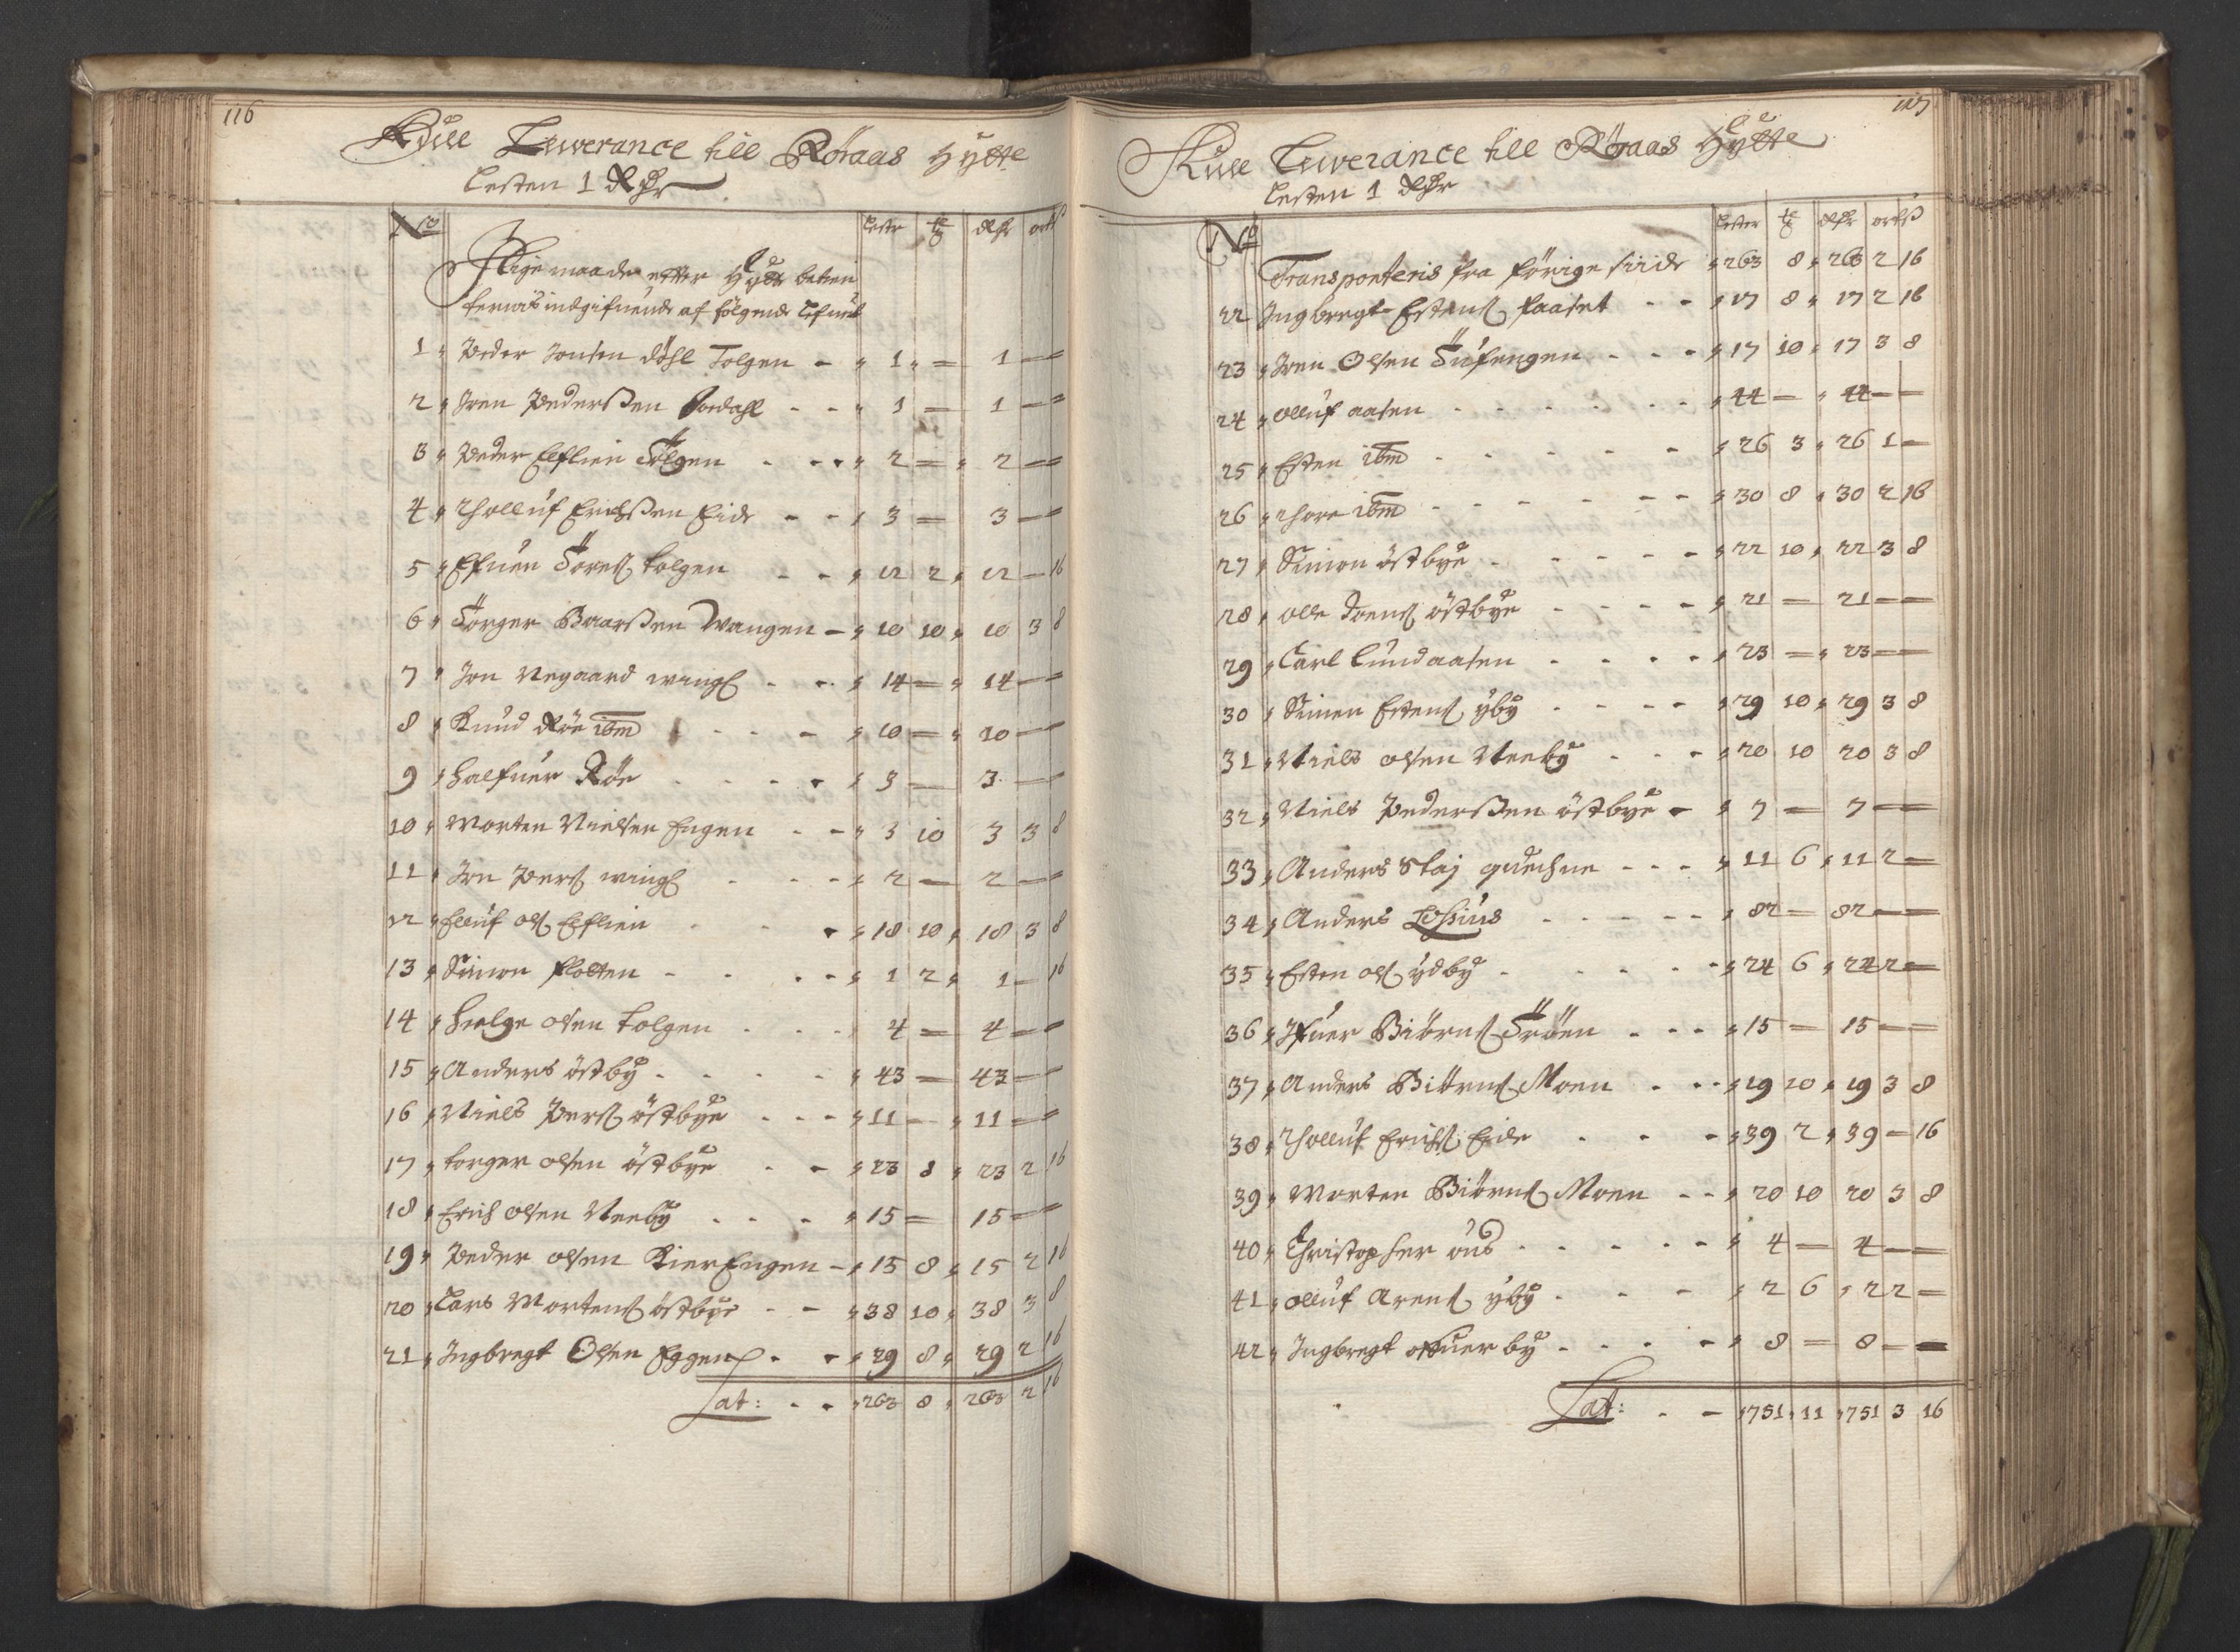 116
Kull Leverance till Röraas Hytte
Lesten 1 Rdr
No Lester tr Rdr ort ß
Lige maade efter Hytte betien
ternis indgifuende af følgende lefuert
1 Peder Jonsen döhl Tolgen - 1 = 1 =
2 Iren Pederßen - - 1 = 1 =
3 Peder Elflien Tolgen - - 2 = 2 =
4 Tholluf Erichßen Eide - - 3 = 3 =
5 Efuen Törres tolgen - - 12 2 12 - 16
6 Törger Baarßen Wangen - 10 10 10 3 8
7 Jon Negaard wings - - 14 = 14 =
8 Knud Röe ibm - - 10 = 10 =
9 Halfuer Röe - - 3 = 3 =
10 Morten Nielsen Engen - - 3 10 3 3 8
11 Jon Pers wings - - 2 = 2 =
12 Elluf Ols Elflien - 18 10 18 3 8
13 Simon flotten - - 1 2 1 - 16
14 Helge olsen tolgen - - 4 = 4 =
15 Anders östby - - 43 = 43 =
16 Niels Pers östbye - - 11 - 11 =
17 torger olsen östbye - - 23 8 23 2 16
18 Erich olsen Neeby - - 15 = 15 =
19 Peder olsen Kier Engen - 15 8 15 2 16
20 Lars Mortens östbye - - 38 10 38 3 8
21 Ingbregt Olsen Eggen - - 29 8 29 2 16
Lat: - - 263 8 263 2 16
117
Kull Leverance till Röraas Hytte
Lesten 1 Rdr
No Lester tr Rdr ort ß
Transporteris fra förige siide 263 8 263 2 16
22 Ingbregt Estens faaset - - 17 8 17 2 16
23 Iren Olsen Tufengen - - - 17 10 17 3 8
24 olluf aasen - - 44 = 44 =
25 Esten ibm - - 26 3 26 1 -
26 thore ibm - - 30 8 30 2 16
27 Simon östbye - - 22 10 22 3 8
28 olle Joens östbye - - 21 = 21 =
29 Carl Lundaasen - - 23 = 23 =
30 Simen Estens yby - - 29 10 29 3 8
31 Niels olsen Neeby - - 20 10 20 3 8
32 Niels Pederßen östbye - 7 = 7 =
33 Anders Staj quechne - - - 11 6 11 2 -
34 Anders Loßius - - 82 = 82 =
35 Esten ols ydby - - 24 6 24 2 =
36 Ifuer Biörns Tröen - - - 15 = 15 =
37 Anders Biörns Moen - - - 19 10 19 3 8
38 Tholluf Erichs Eide - - - 39 2 39 - 16
39 Morten Biörns Moen - - 20 10 20 3 8
40 Christopher öus - - 4 = 4 =
41 olluf Arens yby - - 2 6 2 2 =
42 Ingbregt offuer by - - 8 = 8 =
Lat: - - 751 11 751 3 16